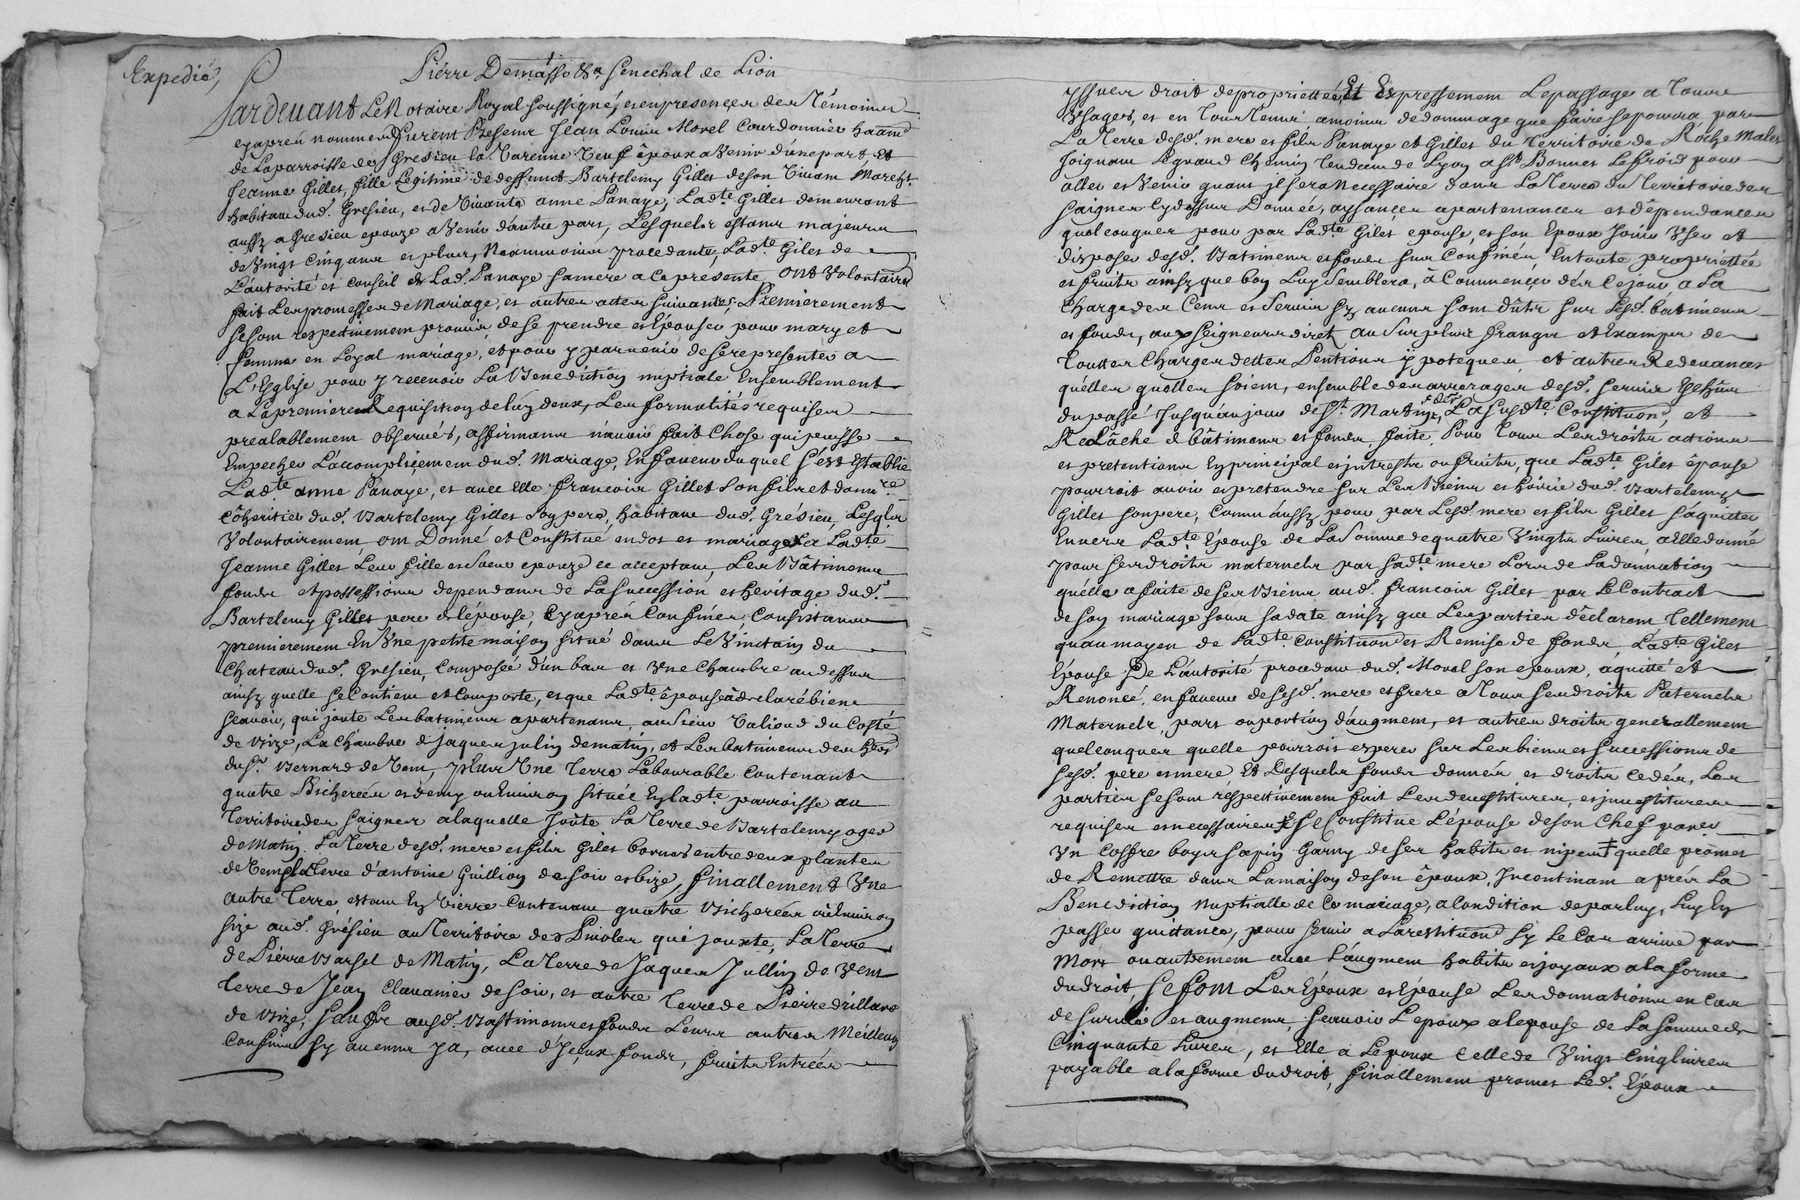 Expedié,
Pierre Demasso &a Senechal de Lion
Pardevant Le Notaire Royal soussigné, et en presences des Témoins
cyaprés nommés furent Presens Jean Louis Morel Courdonnier
de La parroisse de Gresieu la Varenne Veuf époux avenir d'une part Et
Jeanne Gilles, fille Legitime de deffunct Bartelemy Gilles de son Vivant
habitant dud. Gresieu, et de Vivante anne Panaye, Ladte. Gilles demeurant
aussy a Gresieu epouze avenir d'autre part, Lesquels estans majeurs
de Vingt cinq ans et plus, Neanmoins procedants, Ladte. Giles de
L'autorité et conseil de Lad. Panaye sa mere a ce presente, ont volontairt
fait Les promesses de Mariage, et autres actes suivantes; Premierement
se sont respectivement promis, de se prendre et Epouser pour mary et
femme en Loyal mariage, et pour y parvenir de se representer a
L'Eglise pour y recevoir La Benediction nuptiale Ensemblement
a La premiere Requisition de l'un deux, Les formalités requises
prealablement observées, affirmans n'avoir fait chose qui puisse
Empecher L'accomplicement dud. Mariage, En faveur duquel s'est Establie
Ladte. anne Panaye, et avec Elle françois Gilles son fils et donnre.
Coheritier dud. Bartelemy Gilles son pere, habitant dud. Grésieu, Lesqls
Volontairement ont Donné et Constitué en dot et mariage a Ladte.
Jeanne Gilles Leur fille et Soeur epouze ce acceptant, Les Bâtimens
fonds et possessions dependans de La succession et heritage dud.
Bartelemy Gilles pere de lépouse, Cyaprés Confinés, Consistans
premierement En Vne petite maison situé dans Le Vinctain du
Chateau dud. Gresieu, Composée d'un bas et Vne Chambre au dessus
ainsy quelle se Contient et Comporte, et que Ladte. épouse à declaré bien
scavoir, qui joute Les batimens apartenans au Sieur Caliond du Costé
de Bize, La Chambre de Jaques Julin de matin, et Les batimens des
du Sr. Bernard de Vent, plus Vne Terre Labourable Contenant
quatre Bicherées et demy ou Environ située En Ladte. parroisse au
Territoire des saignes a laquelle Joûte La Terre de Bartelemy oges
de Matin, La Terre desd. mere et fils Giles bornes entre deux plantés
de Vent, La Terre d'antoine Guillion de soir et bize, finallement Vne
autre Terre estant En Vierre Contenant quatre Bicherées ou Environ
size aud. Grésieu au Territoire des Pinoles qui jouxte, La Terre
de Pierre Barjel de Matin, La Terre de Jaques Jullin de Vent
Terre de Jean Clavanier de soir, et autre Terre de Pierre
de Bize, sauf aud. Bastimens et fonds Leurs autres Meilleurs
Confins sy aucuns y a, avec d'Jceux fonds, fruits Entrées
yssues droit de proprietté, Et Expressement Le passage a Tous
Vsages, et en Tout Tems amoins de dommage que faire se pourra par
La Terre desd. mere et fils Panaye et Gilles du Territoire de Roche
Joignant Legrand Chemin Tendant de Lyon a St. Bonnet Le froid pour
aller et Venir quant jl sera Necessaire dans La Terre du Territoire des
saignes Cydessus Donnée, aysances apartenances et dépendances
quelconques pour par Ladte Giles epouse, et son Epoux Jouir User et
disposer desd. Batimens et fonds sur Confinés, En toute proprietée
et fruits ainsy que bon Luy Semblera, à Commencer dés Cejour a La
charge des Cens et Servis sy aucuns sont dûts sur Lesd. bâtimens
et fonds, aux seigneurs direts, au surplus francs et Exemps de
Touttes Charges dettes Pentions ypoteques et autres Redevances
quélles quelles soient, ensemble des arrerages desd. servis
du passé Jusquaujour de St. Martin dr, La susdte Constitution, et
Relâche de bâtimens et fonds, faite, Pour Tous Les droits actions
et pretentions En principal et jntrests ou fruits, que Ladte. Giles épouse
pourroit avoir et pretendre sur Les Biens et hoirie dud. Bartelemy
Gilles son pere, Comm' aussy pour par Lesd. mere et fils Gilles s'aquitter
Envers Ladte. Epouse de La Somme de quatre Vingts Livres, a Elle donné
pour ses droits maternels par sadte. mere Lors de La donnation
quélle a faite de ses Biens aud. françois Gilles par Le Contract
de son mariage sous sa date ainsy que Les parties déclarent Tellement
quau moyen de Ladte. Constitution et Remise de fonds, Ladte Giles
Epouse De L'autorité procedant dud. Morel son epoux, a quitté et
Renoncé, en faveur de sesd. mere et frere a Tous ses droits Paternels
Maternels, parts ou portion d'augment, et autres droits generallement
quelconques quelle pourroit esperer sur Les biens et Successions de
sesd. pere et mere, Et Desquels fonds donnés et droits cedés, Les
parties se sont respectivement fait Les devestitures, et jnvestitures
requises et necessaires, Et se Constitue L'épouse de son Chef parer
Vn Coffre boy sapin Garny de ses habits et nipes quelle promet
de Remettre dans La maison de son époux, Jncontinant aprés La
Benediction nuptialle de Ce mariage, a Condition de par luy, Luy En
passer quittance, pour servir a La restitution sy Le Cas arrive par
Mort ou autrement avec L'augment habits et joyaux a la forme
du droit, se font Les Epoux et Epouse Les donnations en Cas
de survie et augment, scavoir L'epoux a lepouse de La Somme de
Cinquante Livres, et Elle à Lepoux Celle de Vingt Cinq livres
payable a la forme du droit, finallement promet Led. Epoux